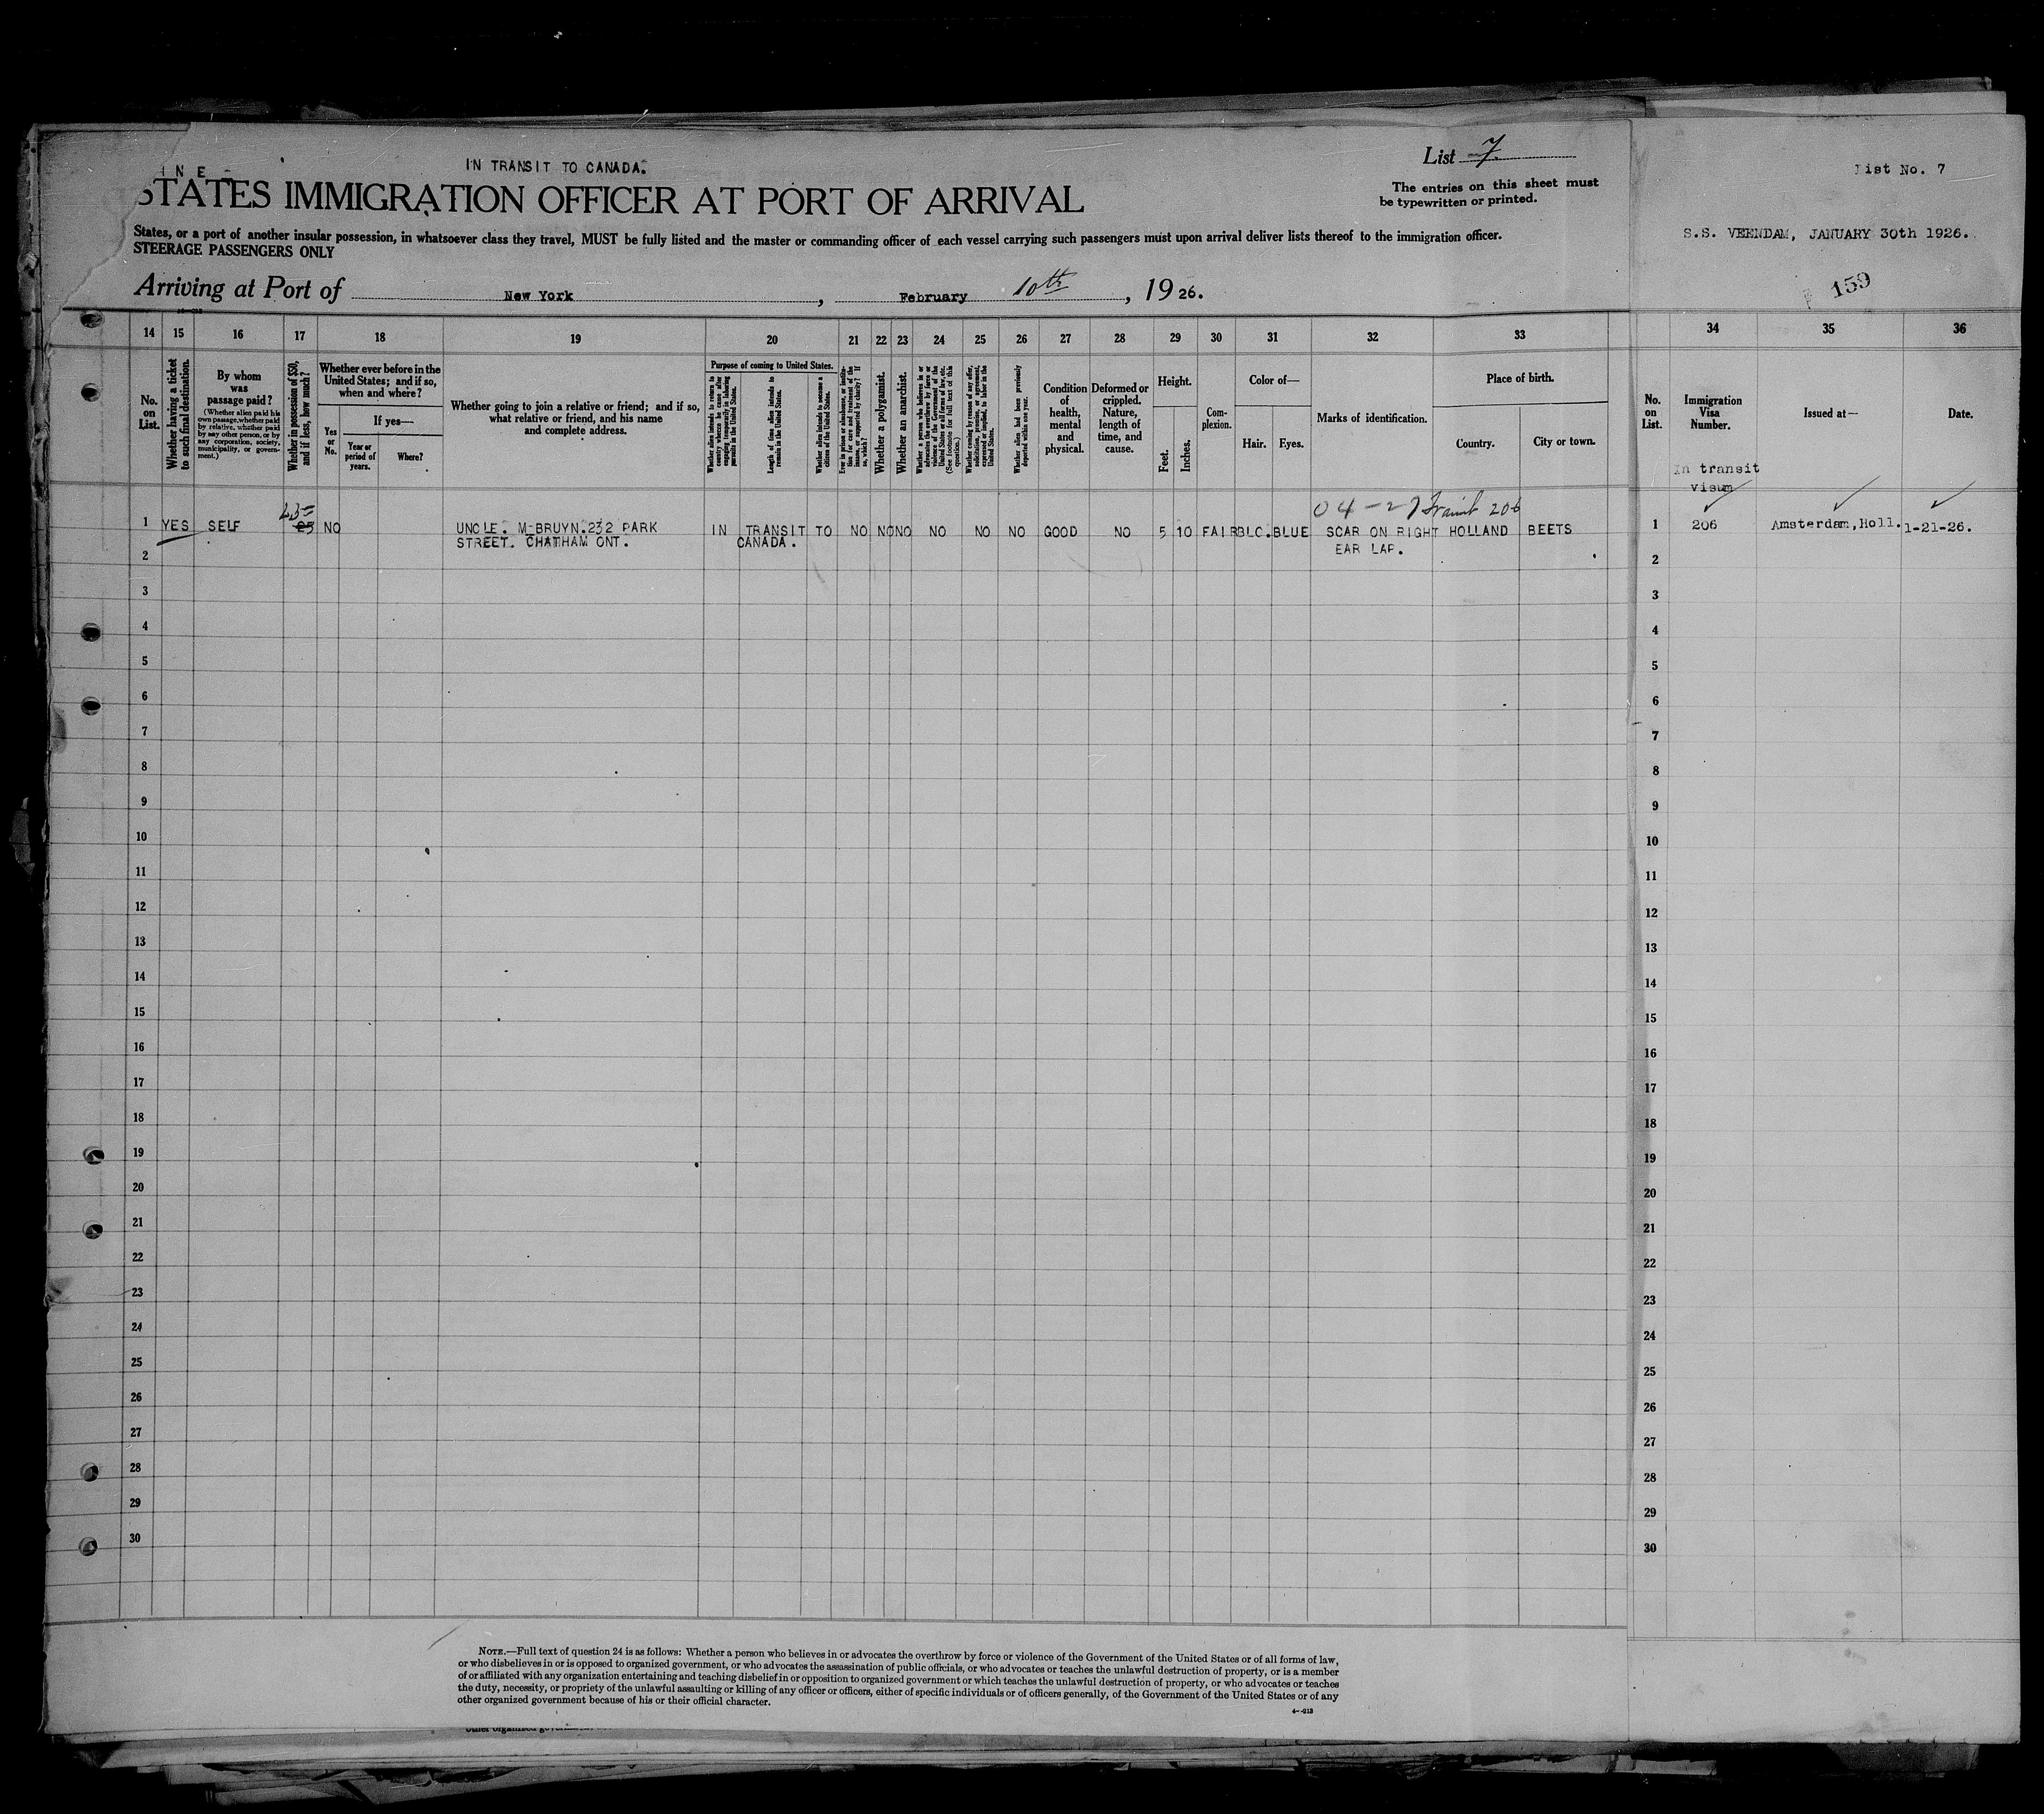 INE -
IN TRANSIT TO CANADA.
List 7
STATES IMMIGRATION OFFICER AT PORT OF ARRIVAL
The entries on this sheet must
be typewritten or printed.
States, or a port of another insular possession, in whatsoever class they travel, MUST be fully listed and the master or commanding officer of each vessel carrying such passengers must upon arrival deliver lists thereof to the immigration officer.
STEERAGE PASSENGERS ONLY
Arriving at Port of New York, February 10th, 1926.
List No. 7
S.S. VEENDAM, JANUARY 30th 1926.
159
14 15 16 17 18 19 20 21 22 23 24 25 26 27 28 29 30 31 32 33 34 35 36
No. on List.
Whether having a ticket to such final destination.
By whom was passage paid?
(Whether alien paid his own passage, whether paid by relative, whether paid by any other person, or by any corporation, society, municipality, or government.)
Whether in possession of $50, and if less, how much?
Whether ever before in the United States; and if so, when and where?
Yes or No.
If yes—
Year or period of years.
Where?
Whether going to join a relative or friend; and if so, what relative or friend, and his name and complete address.
Purpose of coming to United States.
Whether alien intends to return to country whence he came after engaging temporarily in laboring pursuits in the United States.
Length of time alien intends to remain in the United States.
Whether alien intends to become a citizen of the United States.
Ever in prison or almshouse, or institution for care and treatment of the insane, or supported by charity? If so, which?
Whether a polygamist.
Whether an anarchist.
Whether a person who believes in or advocates the overthrow by force or violence of the Government of the United States or all forms of law, etc. (See footnote for full text of this question.)
Whether coming by reason of any offer, solicitation, promise, or agreement, expressed or implied, to labor in the United States.
Whether alien had been previously deported within one year.
Condition of health, mental and physical.
Deformed or crippled. Nature, length of time, and cause.
Height.
Feet.
Inches.
Complexion.
Color of—
Hair.
Eyes.
Marks of identification.
Place of birth.
Country.
City or town.
No. on List.
Immigration Visa Number.
Issued at—
Date.
In transit
visum
04-27 Transit 206
1 YES SELF 25 NO UNCLE. M BRUYN.232 PARK IN TRANSIT TO NO NO NO NO NO NO GOOD NO 5 10 FAIR BLC. BLUE SCAR ON RIGHT HOLLAND BEETS 1 206 Amsterdam,Holl. 1-21-26.
STREET. CHATHAM ONT. CANADA. EAR LAP.
2 2
3 3
4 4
5 5
6 6
7 7
8 8
9 9
10 10
11 11
12 12
13 13
14 14
15 15
16 16
17 17
18 18
19 19
20 20
21 21
22 22
23 23
24 24
25 25
26 26
27 27
28 28
29 29
30 30
NOTE.—Full text of question 24 is as follows: Whether a person who believes in or advocates the overthrow by force or violence of the Government of the United States or of all forms of law,
or who disbelieves in or is opposed to organized government, or who advocates the assassination of public officials, or who advocates or teaches the unlawful destruction of property, or is a member
of or affiliated with any organization entertaining and teaching disbelief in or opposition to organized government or which teaches the unlawful destruction of property, or who advocates or teaches
the duty, necessity, or propriety of the unlawful assaulting or killing of any officer or officers, either of specific individuals or of officers generally, of the Government of the United States or of any
other organized government because of his or their official character.